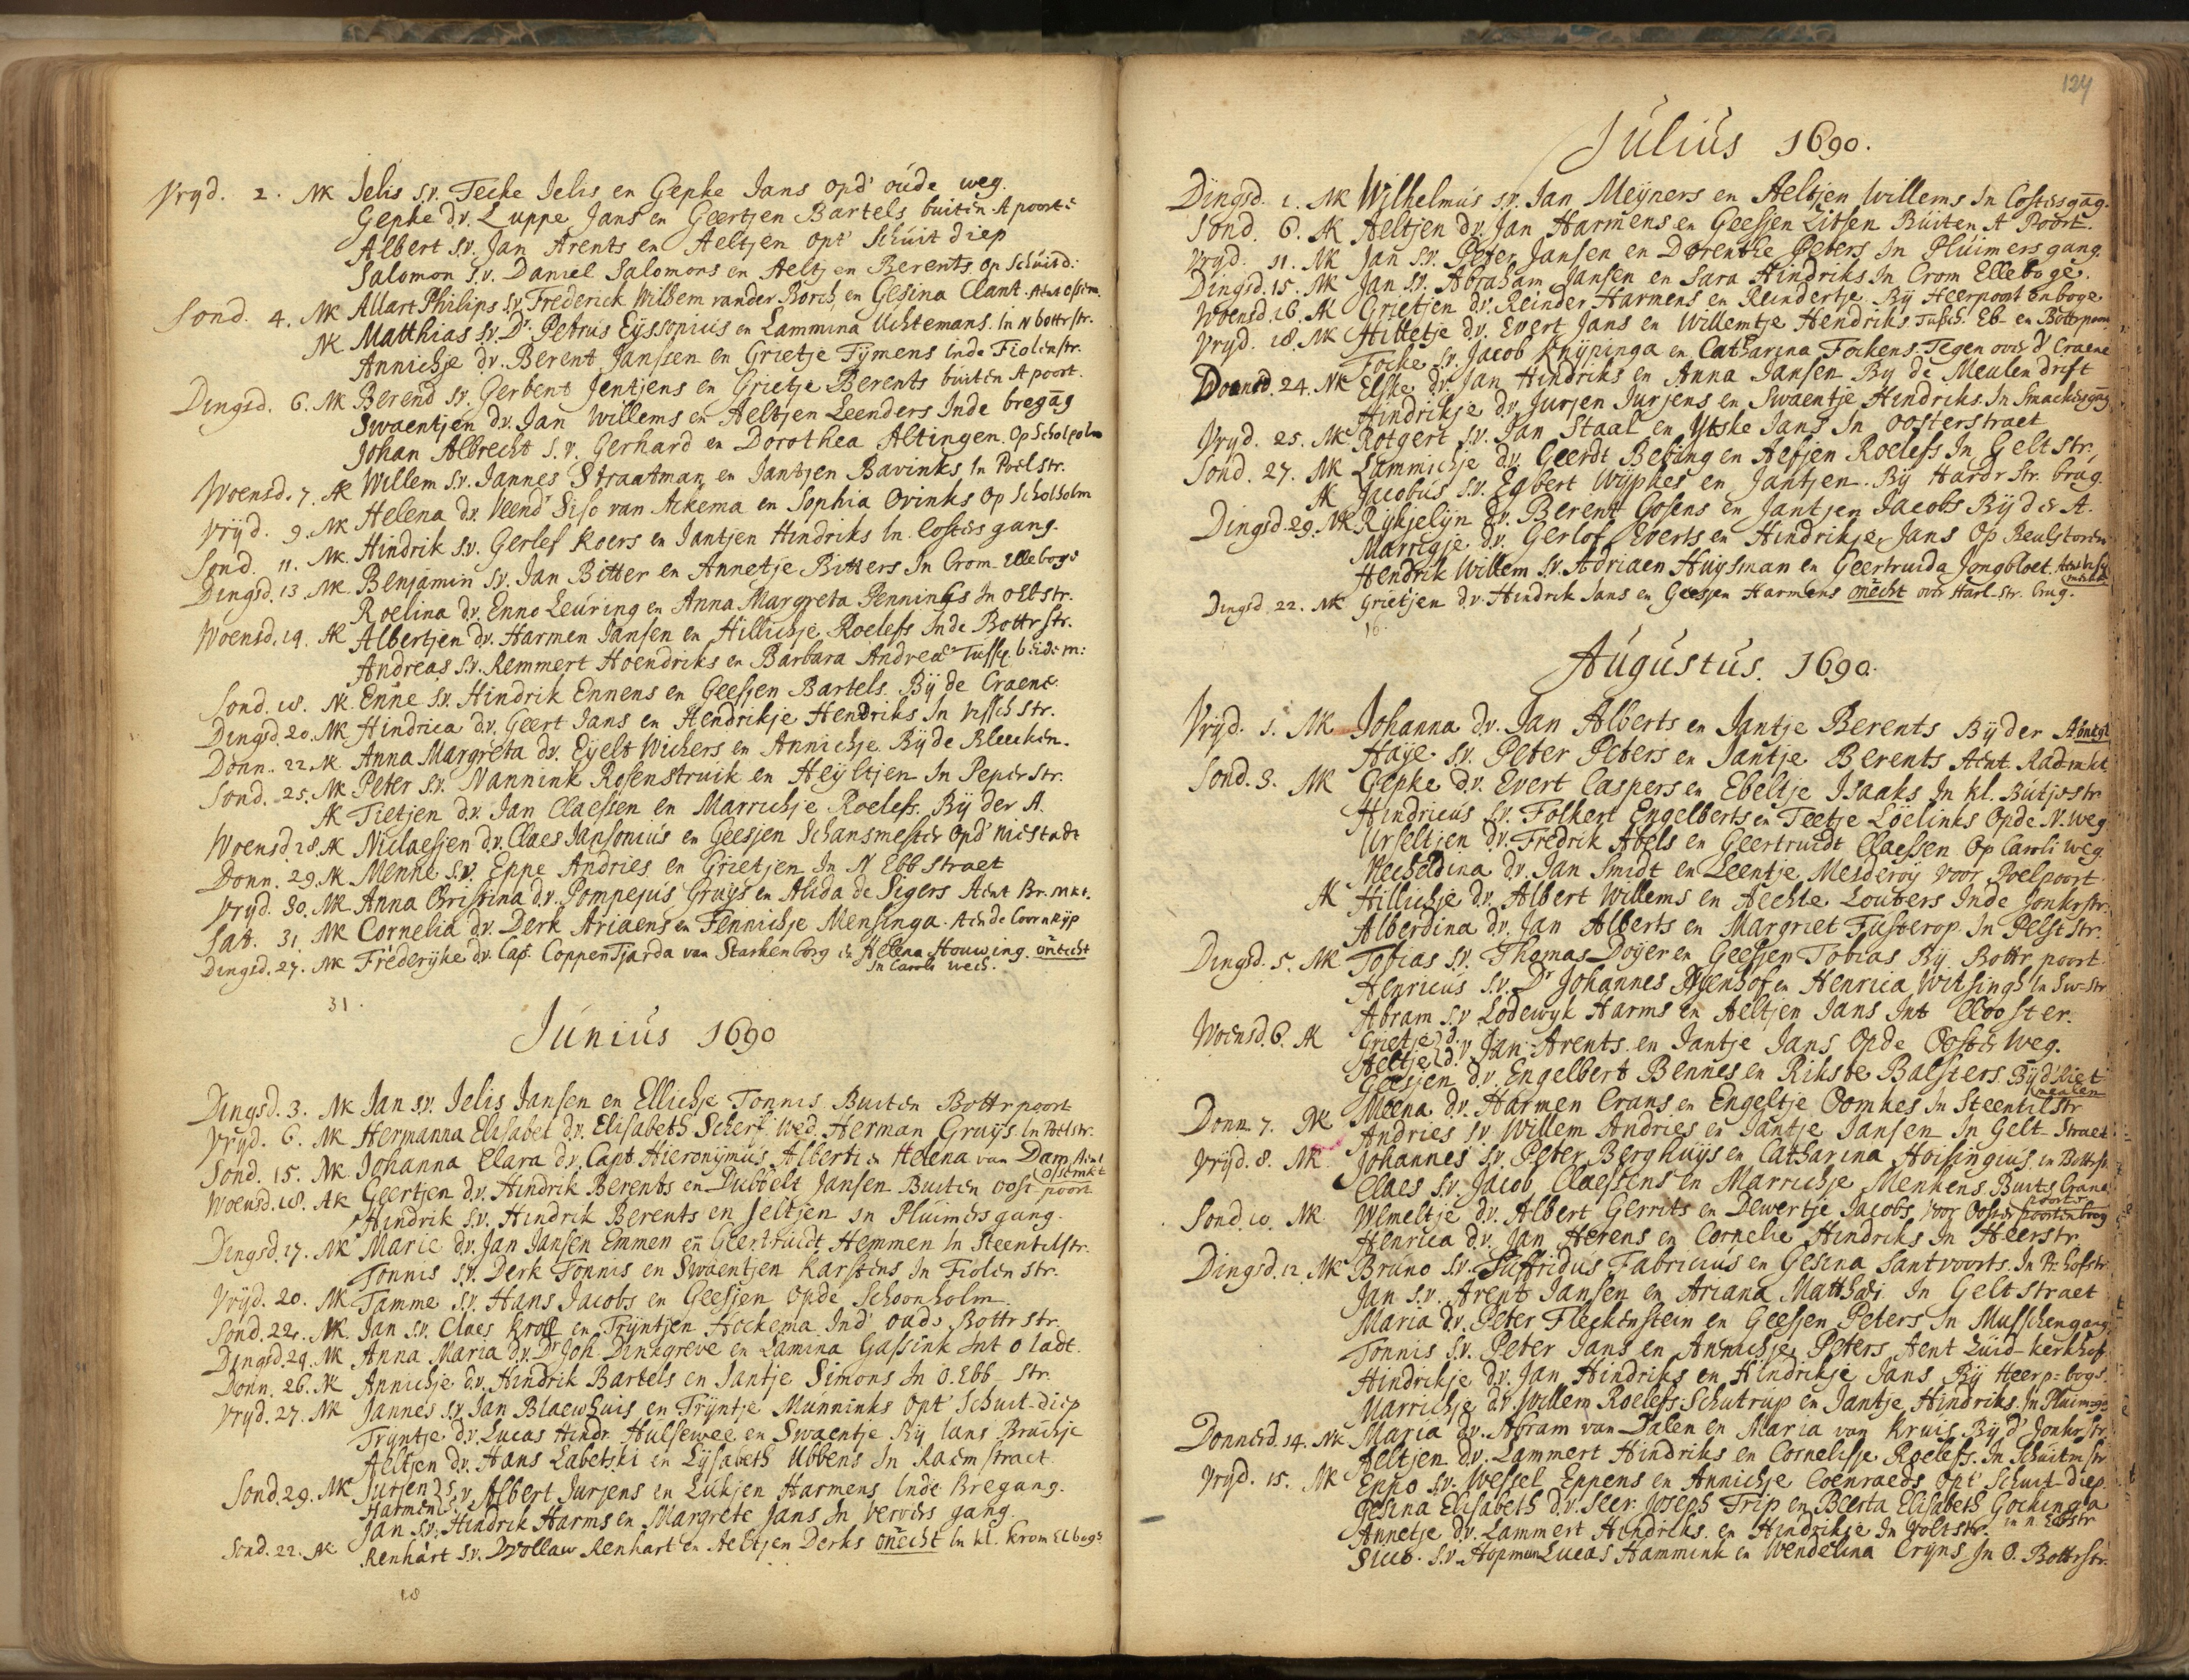 Vryd. 2. NK Jelis s.v. Tecke Jelis en Gepke Jans opd' oude weg.
Gepke d.v. Luppe Jans en Geertjen Bartels buiten A poorte
Albert s.v. Jan Arents en Aeltjen opt' Schuit diep
Salomon s.v. Daniel Salomons en Aeltjen Berents. op Schuitd:
Sond. 4. NK Allart Philips s.v. Frederick Wilhem vander Borch, en Gesina Clant.
NK Matthias s.v. Dr. Petrus Eyssonius en Lammina Uchtemans. In N bottrstr.
Annichje d.v. Berent Janssen en Grietje Tymens inde Fiolenstr.
Dingsd. 6. NK Berend s.v. Gerbent Jentjens en Grietje Berents buiten A poort.
Swaentjen d.v. Jan Willems en Aeltjen Leenders Inde bregāg
Johan Albrecht s.v. Gerhard en Dorothea Altingen. Op Scholholm
Woensd. 7. AK Willem s.v. Jannes Straatman en Jantjen Bavinks In Poelstr.
Vryd. 9. NK Helena d.v. Veend' Siso van Ackema en Sophia Ovinks Op Scholholm
Sond. 11. NK. Hindrik s.v. Gerlef Koers en Jantjen Hindriks In Costers gang.
Dingsd. 13. NK. Benjamin s.v. Jan Bitter en Annetje Bitters In Crom Elleboge
Roelina d.v. Enno Leuring en Anna Margreta Pennings In o Ebstr.
Woensd. 14. AK Albertjen d.v. Harmen Jansen en Hillichje Roelefs Inde Bottrstr.
Andreas s.v. Remmert Hoendriks en Barbara Andreæ Tussch. beide m:
Sond. 18. NK. Enne s.v. Hindrik Ennens en Geesjen Bartels. By de Craene.
Dingsd. 20. NK Hindrica d.v. Geert Jans en Hendrikje Hendriks In Vissch str.
Donn. 22. NK Anna Margreta d.v. Eyelt Wichers en Annichje. By de Bleecken.
Sond. 25. NK Peter s.v. Nannink Rosenstruik en Heyltjen In Peper str.
AK Tietjen d.v. Jan Claessen en Marrichje Roelefs. By der A.
Woensd. 28. AK Niclaesjen d.v. Claes Jansonius en Geesjen Schansmester Opd' niestadt
Donn. 29. NK Menne s.v. Eppe Andries en Grietjen In N Ebb straet
Vryd. 30. NK Anna Christina d.v. Pompejus Gruys en Alida de Sigers Aent Br. mkt.
Sat. 31. NK Cornelia d.v. Derk Ariaens en Fennichje Mensinga. Aen de Coornryp
Dingsd. 27. NK Frederijke d.v. Cap. Coppen Tjarda van Starkenborg en Helena Houwing. oñecht
In Caroli wech.
31.
Junius 1690
Dingsd. 3. NK Jan s.v. Jelis Jansen en Ellichje Tonnis Buiten Bottrpoort
Vryd. 6. NK Hermanna Elisabet d.v. Elisabeth Scherf Wed. Herman Gruys. In Poelstr.
Sond. 15. NK Johanna Clara d.v. Capt Hieronymus Alberti en Helena van Dam Aent
Ossemkt
Woensd. 18. AK Geertjen d.v. Hindrik Berents en Dubbelt Jansen Buiten oost poort.
Hindrik s.v. Hindrik Berents en Jeltjen in Pluimers gang.
Dingsd. 17. NK Marie d.v. Jan Jansen Emmen en Geertruidt Hemmen In Steentilstr.
Tonnis s.v. Derk Tonnis en Swaentjen Karstens In Fiolen str.
Vryd. 20. NK Tamme s.v. Hans Jacobs en Geesjen Opde Schoonholm.
Sond. 22. NK. Jan s.v. Claes Kroll en Tryntjen Hockema. Ind' oude Bottrstr.
Dingsd. 24. NK Anna Maria d.v. Dr Joh. Dinkgreve en Lamina Gassink Int o ladt.
Donn. 26. NK Annichje d.v. Hindrik Bartels en Jantje Simons In O. Ebb- str.
Vryd. 27. NK Jannes s.v. Jan Blaewhuis en Tryntje Munninks Opt' Schuit-diep
Tryntje d.v. Lucas Hindr. Hulsewee en Swaentje By lans Bruchje
Aeltjen d.v. Hans Labetski en Lysabeth Ubbens In Raemstraet.
Sond. 29. NK Jurjen } s.v. Albert Jurjens en Lukjen Harmens Inde Bregang.
Harmen
Jan s.v. Hindrik Harms en Margrete Jans In Ververs gang.
Sond. 22. AK Renhart s.v. Wollaw Renhart en Aeltjen Derks oñecht In kl. Krom Elboge
18
124
Julius 1690.
Dingsd. 1. NK Wilhelmus s.v. Jan Meyners en Aeltjen Willems In Costersgāg.
Sond. 6. AK Aeltjen d.v. Jan Harmens en Geesjen Litsen Buiten A Poort.
Vryd. 11. NK Jan s.v. Peter Jansen en Dorenthe Peters In Pluimersgang
Dingsd. 15. NK Jan s.v. Abraham Jansen en Sara Hindriks In Crom Elleboge.
Woensd. 16. AK Grietjen d.v. Reinder Harmens en Reindertje. By Heerpoort enboge
Vryd. 18. NK Hilletje d.v. Evert Jans en Willemtje Hendriks. Tusch. Eb- en Bottrpoort
Focke s.v. Jacob Knypinga en Catharina Fockens. Tegen over d' Craene
Donnd. 24. NK Elske d.v. Jan Hindriks en Anna Jansen By de Meulendrift
Hindrikje d.v. Jurjen Jurjens en Swaentje Hindriks. In Smackersgāg
Vryd. 25. NK Rotgert s.v. Jan Staal en Ytske Jans In Oosterstraet
Sond. 27. NK Lammichje d.v. Geerdt Besing en Aefjen Roelefs In Gelt str.
AK Jacobus s.v. Egbert Wypkes en Jantjen. By Hardr. Str. brug.
Dingsd. 29. NK Rykjelijn d.v. Berent Gosens en Jantjen Jacobs By der A.
Marrigje d.v. Gerlof Everts en Hindrikje Jans Op Reulstoren
Hendrik Willem s.v. Adriaen Huysman en Geertruida Jongbloet
Dingsd. 22. NK Grietjen d.v. Hindrik Jans en Geesjen Harmens oñecht over Harl-str. brug.
16.
Augustus. 1690.
Vryd. 1. NK Johanna d.v. Jan Alberts en Jantje Berents By der
Haye s.v. Peter Peters en Jantje Berents Aent. Rad-mkt
Sond. 3. NK Gepke d.v. Evert Caspers en Ebeltje Isaaks In kl. Butje-str
Hindricus s.v. Folkert Engelberts en Teetje Loelinks Opde N. weg
Urseltjen d.v. Fredrik Abels en Geertruidt Claessen Op Caroli weg
Mecheldina d.v. Jan Smidt en Leentje Mesderoy voor Poelpoort.
AK Hillichje d.v. Albert Willems en Aechte Louters Inde Jonkrstr.
Alberdina d.v. Jan Alberts en Margriet Fusterop. In Pelsterstr.
Dingsd. 5. NK Tobias s.v. Thomas Doyer en Geesjen Tobias By Bottr poort.
Henricus s.v. Dr Johannes Eyenhof en Henrica Witsingh In Sw-str
Abram s.v. Lodewyk Harms en Aeltjen Jans Int Clooster.
Woensd. 6. AK Grietje } d.
Aeltje } d. v. Jan Arents en Jantje Jans Opde Ooster weg.
Geesjen d.v. Engelbert Bennes en Rikste Balsters. By d' Riet
meulen
Donn. 7. NK Meena d.v. Harmen Crans en Engeltje Oomkes In Steentilstr
Andries s.v. Willem Andries en Jantje Jansen In Gelt- Straet
Vryd. 8. NK Johannes s.v. Peter Berghuys en Catharina Hoisingius. in Bottrst.
Claes s.v. Jacob Claessens en Marrichje Menkens. Buit. Crane
poorte
Sond. 10. NK Wemeltje d.v. Albert Gerrits en Dewertje Jacobs voor Ooster poortenboog
Henrica d.v. Jan Herens en Cornelie Hindriks In Heerstr.
Dingsd. 12. NK Bruno s.v. Suffridus Fabricius en Gesina Santvoorts. In Pr. hofstr.
Jan s.v. Arent Jansen en Ariana Matthæi. In Geltstraet
Maria d.v. Peter Fleckenstein en Geesjen Peters In Musschengang
Tonnis s.v. Peter Jans en Annichje Peters Aent Zuid-kerkhof
Hindrikje d.v. Jan Hindriks en Hindrikje Jans By Heerp= boge
Marrichje d.v. Willem Roelefs Schutrup en Jantje Hindriks. In Pluimrgg
Donnerd. 14. NK Maria d.v. Abram van Dalen en Maria van Kruis By d' Jonkrstr.
Aeltjen d.v. Lammert Hindriks en Cornelisje Roelefs. In Schuitmstr
Vryd. 15. NK Enno s.v. Wessel Eppens en Annichje Coenraeds Opt' Schuit-diep
Gesina Elisabeth d.v. Secr. Joseph Trip en Beerta Elisabeth Gockinga
in n. Ebbstr
Annetje d.v. Lammert Hindriks en Hindrikje In Voltstr.
Sicco. s.v. Hopman Lucas Hammink en Wendelina Cryns In O. Bottrstr.